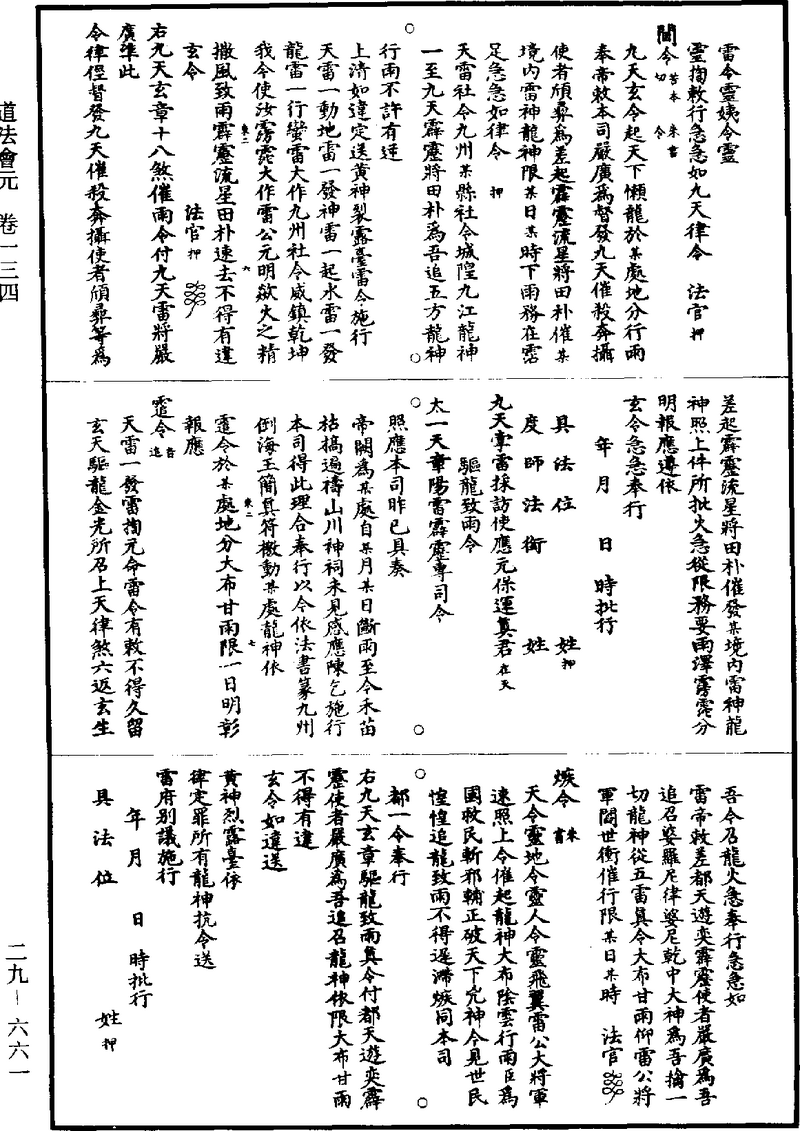 雷令靈姨令靈
靈掏敕行急急如九天律令　法官押
閫令　芳本　朱書
切　令
九天玄令起天下懶龍於某處地分行雨
奉帝敕本司嚴廣為督發九天催殺奔攝
使者頎彝為差起霹靂流星將田朴催某
境內雷神龍神限某日某時下雨務在霑
足急急如律令　押
天雷社令九州某縣社令城隍九江龍神
一至九天霹靂將田朴為吾追五方龍神
行雨不許有迕
上清如違定送黃神裂露臺雷令施行
天雷一動地雷一發神雷一起水雷一發
龍雷一行蠻雷大作九州社令威鎮乾坤
我今使汝霶霈大作雷公元明歘火之精
撒風致雨霹靂流星田朴速去不得有違
玄令　法官押
右九天玄章十八煞催雨令付九天雷將嚴
廣準此
令律徑督發九天催殺奔攝使者頎彝等為
差起霹靂流星將田朴催發某境內雷神龍
神照上件所批火急從限務要雨澤霶霈分
明報應遵依
玄令急急奉行
年　月　日　時批行
具　法　位　姓押
度　師　法　銜　姓
九天章雷採訪使應元保運真君在天
驅龍致雨令
太一天章陽雷霹靂專司令
照應本司昨已具奏
帝闕為某處自某月某日斷雨至今禾苗
枯槁遍禱山川神祠未見感應陳乞施行
本司得此理合奉行以今依法書篆九州
倒海玉簡真符檄動某處龍神依
靈令於某處地分大布甘雨限一日明彰
報應
霆令　音追
天雷一發雷掏元命雷令有敕不得久留
玄天驅龍金光所召上天律煞六返玄生
吾今召龍火急奉行急急如
雷帝敕差都天遊奕霹靂使者嚴廣為吾
追召婆羅尼律婆尼乾中大神為吾擒一
切龍神從五雷真令大布甘雨仰雷公將
軍閻世衝催行限某日某時　法官
嫉令　朱書
天令靈地令靈人令靈飛翼雷公大將軍
速照上令催起龍神大布陰雲行雨臣為
國救民斬邪輔正破天下兇神今見世民
惶惶追龍致雨不得遲滯嫉同本司
都一令奉行
右九天玄章驅龍致雨真令付都天遊奕霹
靂使者嚴廣為吾追召龍神依限大布甘雨
不得有違
玄令如違送
黃神烈露臺依
律定罪所有龍神抗令送
雷府別議施行
年　月　日　時批行
具　法　位　姓押
道法會元　卷一三四
二九－六六一